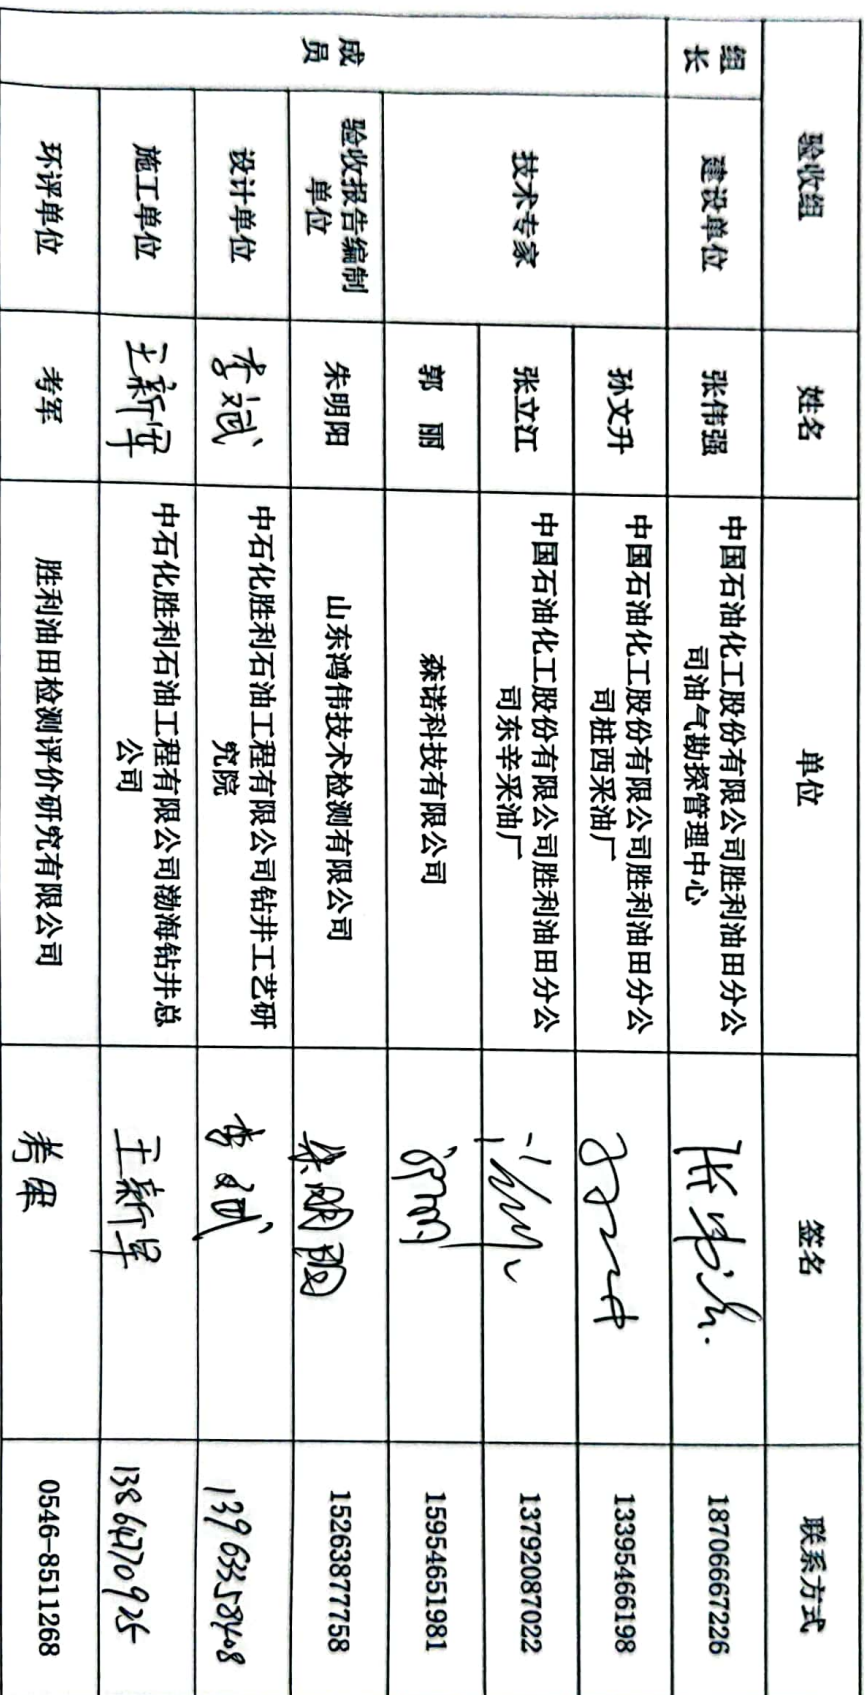 验收组 姓名 单位 签名 联系方式
组长 建设单位 张伟强 中国石油化工股份有限公司胜利油田分公
司油气勘探管理中心 18706667226
成员 技术专家 孙文升 中国石油化工股份有限公司胜利油田分公
司桩西采油厂 13395466198
张立江 中国石油化工股份有限公司胜利油田分公
司东辛采油厂 13792087022
郭 丽 森诺科技有限公司 15954651981
验收报告编制
单位 朱明阳 山东鸿伟技术检测有限公司 朱明阳 15263877758
设计单位 李斌 中石化胜利石油工程有限公司钻井工艺研
究院 李斌
施工单位 王新军 中石化胜利石油工程有限公司渤海钻井总
公司 王新军
环评单位 考军 胜利油田检测评价研究有限公司 考军 0546-8511268